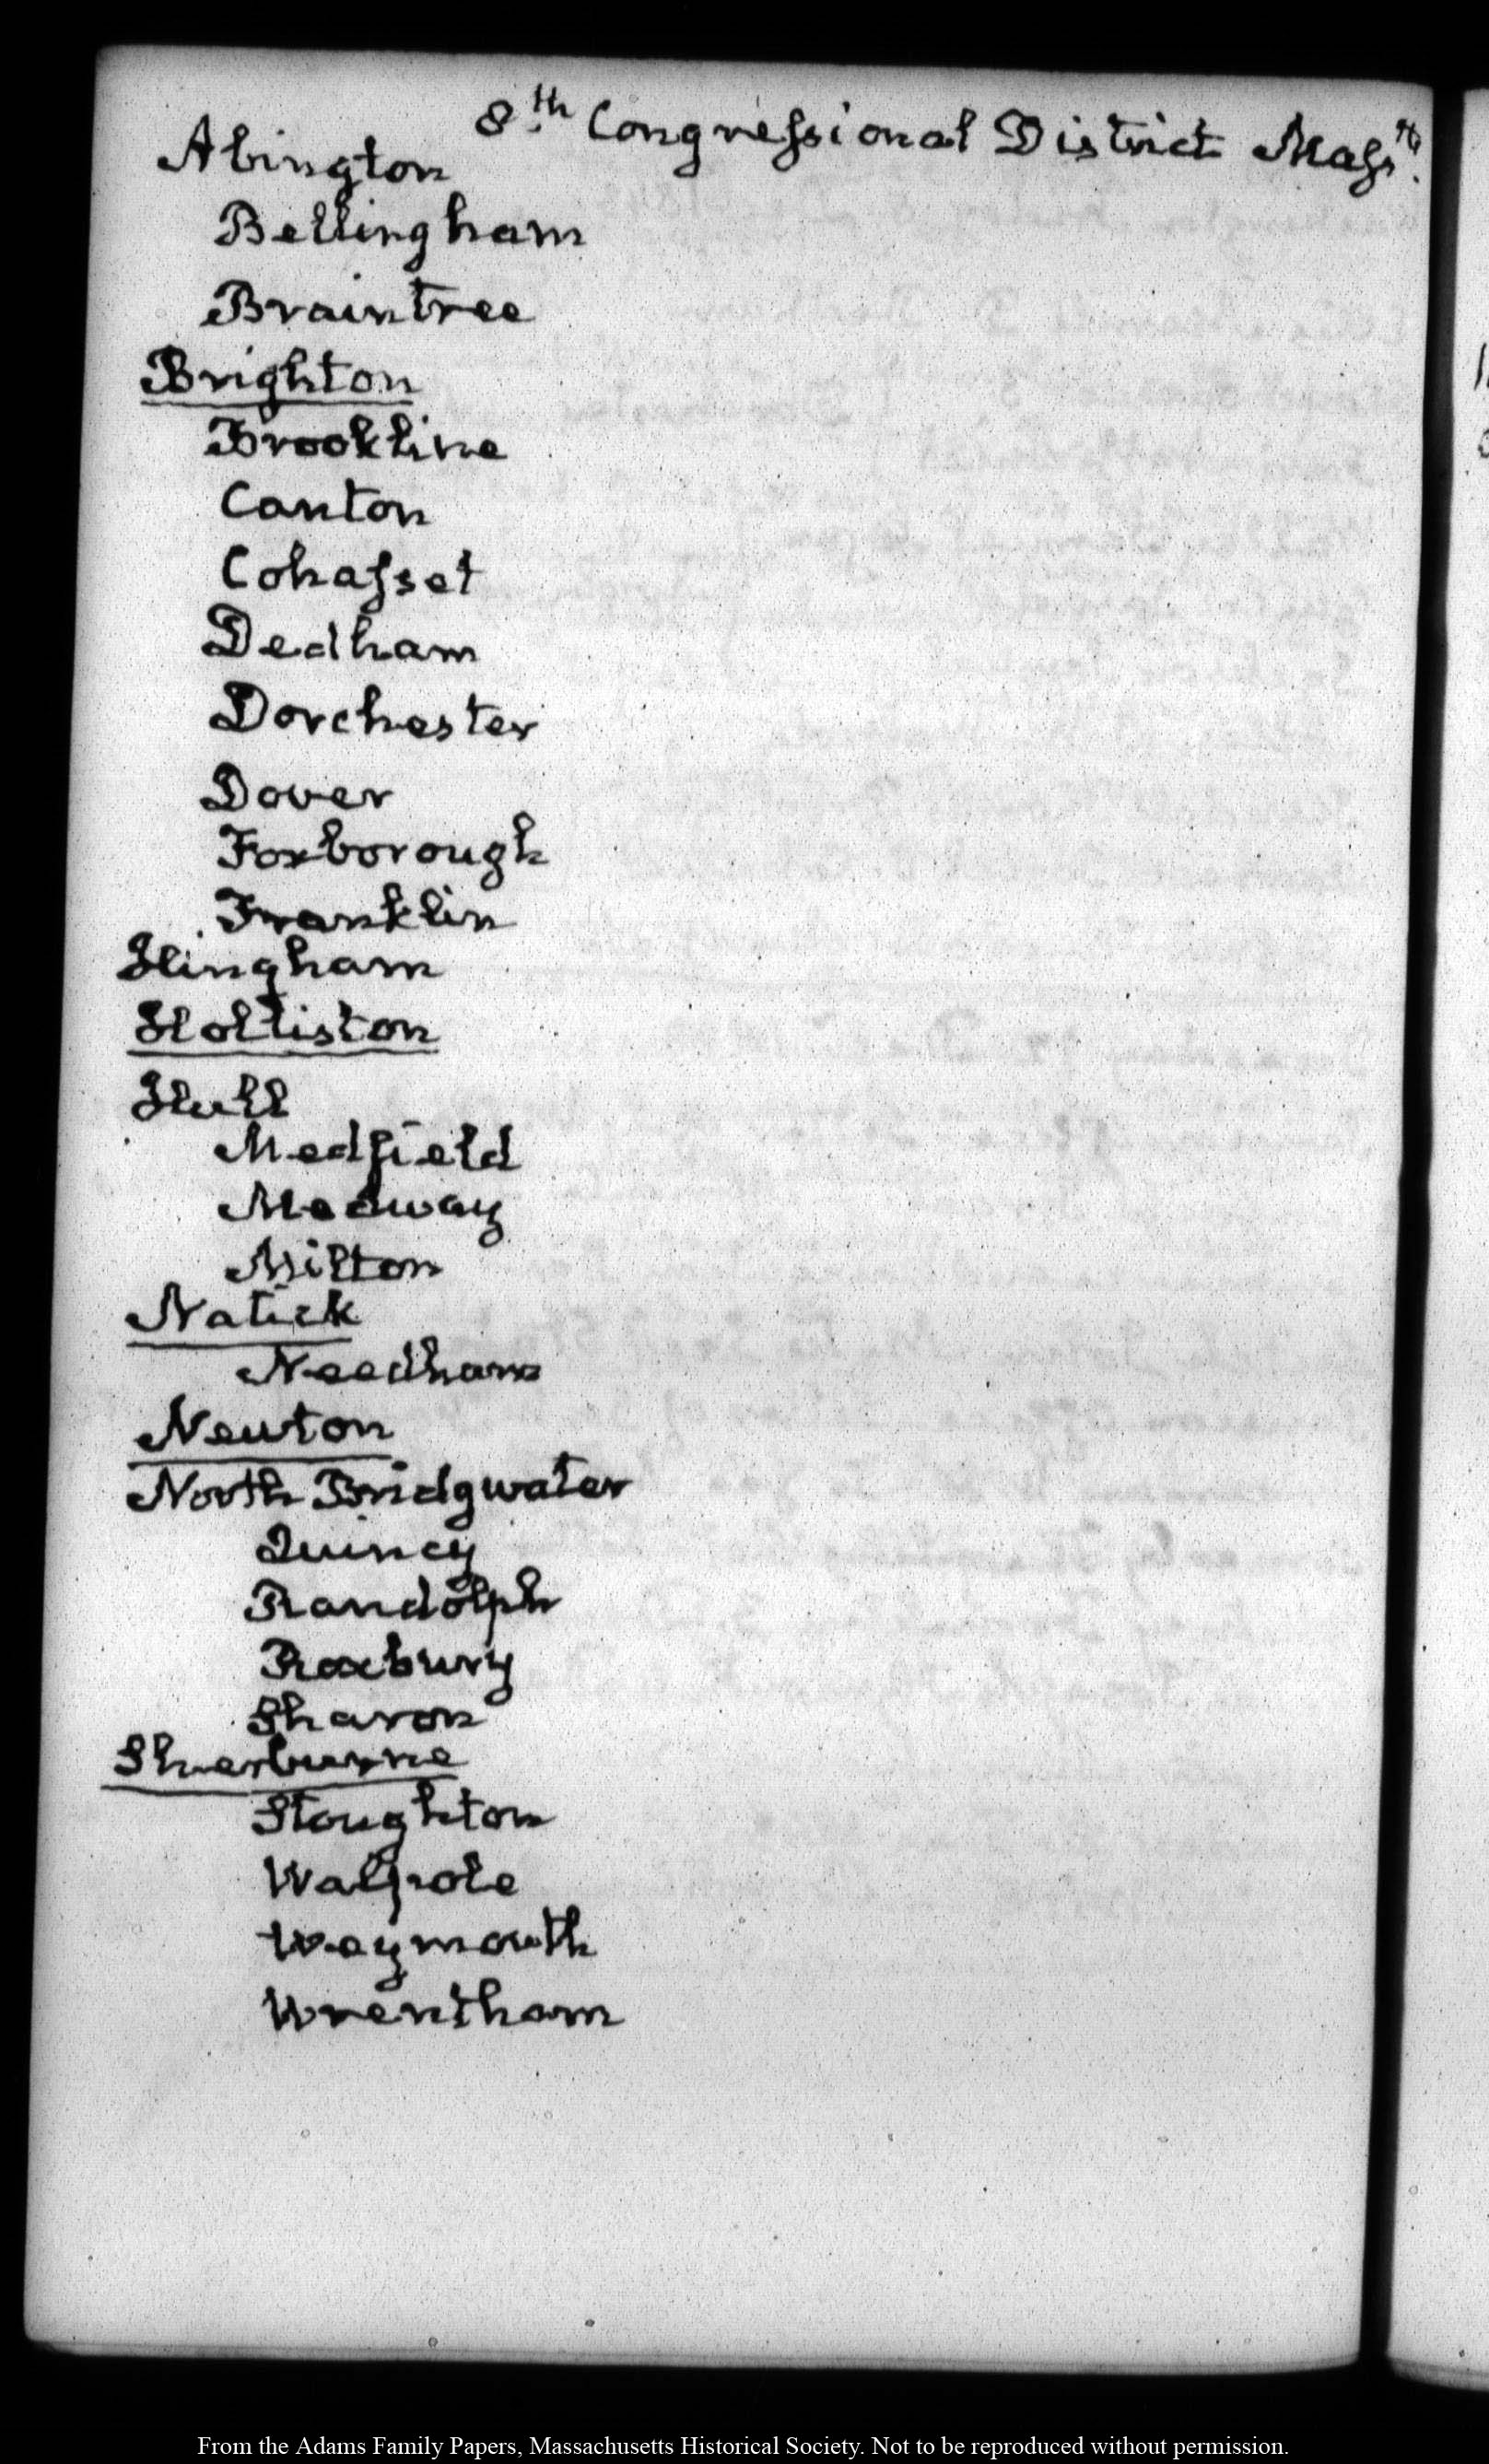 8th. Congressional District Massts.
Abington
Bellingham
Braintree
Brighton
Brookline
Canton
Cohasset
Dedham
Dorchester
Dover
Foxborough
Franklin
Hingham
Holliston
Hull
Medfield
Medway
Milton
Natick
Needham
Newton
North Bridgwater
Quincy
Randolph
Roxbury
Sharon
Sherburne
Stoughton
Walpole
Weymouth
Wrentham
From the Adams Family Papers, Massachusetts Historical Society. Not to be reproduced without permission.